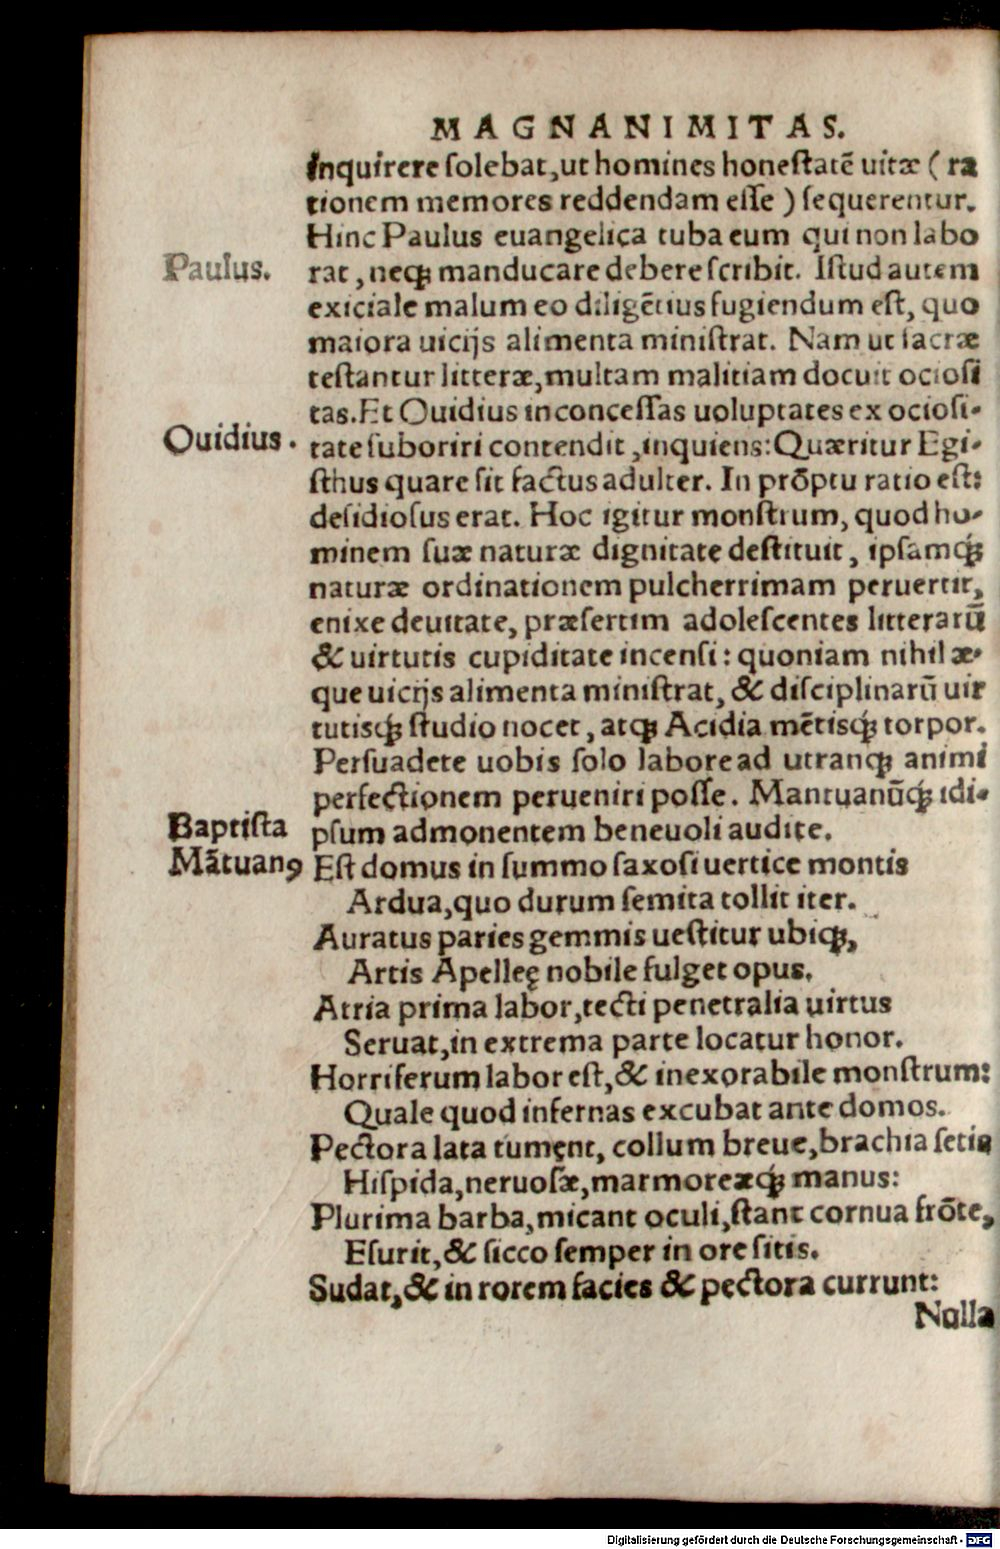 MAGNANIMITAS.
Inquirere ſolebat, ut homines honeſtatē uitæ ( ra
tionem memores reddendam eſſe ) ſequerentur.
Hinc Paulus euangelica tuba eum qui non labo
Paulus.
rat, neqꝫ manducare debere ſcribit. Iſtud autem
exiciale malum eo diligētius fugiendum eſt, quo
maiora uicijs alimenta miniſtrat. Nam ut ſacræ
teſtantur litteræ, multam malitiam docuit ocioſi
tas. Et Ouidius inconceſſas uoluptates ex ocioſi-
Ouidius.
tate ſuboriri contendit, inquiens: Quæritur Egi-
ſthus quare ſit factus adulter. In prōptu ratio eſt:
deſidioſus erat. Hoc igitur monſtrum, quod ho-
minem ſuæ naturæ dignitate deſtituit, ipſamqꝫ́
naturæ ordinationem pulcherrimam peruertit,
enixe deuitate, præſertim adoleſcentes litterarū
& uirtutis cupiditate incenſi: quoniam nihil æ-
que uicijs alimenta miniſtrat, & diſciplinarū uir
tutisqꝫ́ ſtudio nocet, atqꝫ Acidia mētisqꝫ́ torpor.
Perſuadete uobis ſolo labore ad utranqꝫ animi
perfectionem perueniri poſſe. Mantuanūqꝫ́ idi-
Baptiſta
Mātuanꝯ
pſum admonentem beneuoli audite.
Eſt domus in ſummo ſaxoſi uertice montis
Ardua, quo durum ſemita tollit iter.
Auratus paries gemmis ueſtitur ubiqꝫ,
Artis Apelleę nobile fulget opus.
Atria prima labor, tecti penetralia uirtus
Seruat, in extrema parte locatur honor.
Horriferum labor eſt, & inexorabile monſtrum:
Quale quod infernas excubat ante domos.
Pectora lata tument, collum breue, brachia ſetis
Hiſpida, neruoſæ, marmoreæqꝫ́ manus:
Plurima barba, micant oculi, ſtant cornua frōte,
Eſurit, & ſicco ſemper in ore ſitis.
Sudat, & in rorem facies & pectora currunt:
Nulla
Digitalisierung gefördert durch die Deutsche Forschungsgemeinschaft - DFG